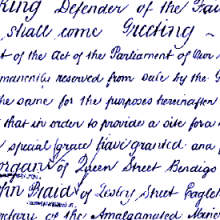 King Defender of the Fai
shall come Greeting ~
t of the Act of the Parliament of Our
manently reserved from sale by the G
the same for the purposes hereinafter
that in order to provide a site for a
special grace have granted and
organ of Queen Street Bendigo
hn Praid of Street Eagle
of the Amalgamated Mine